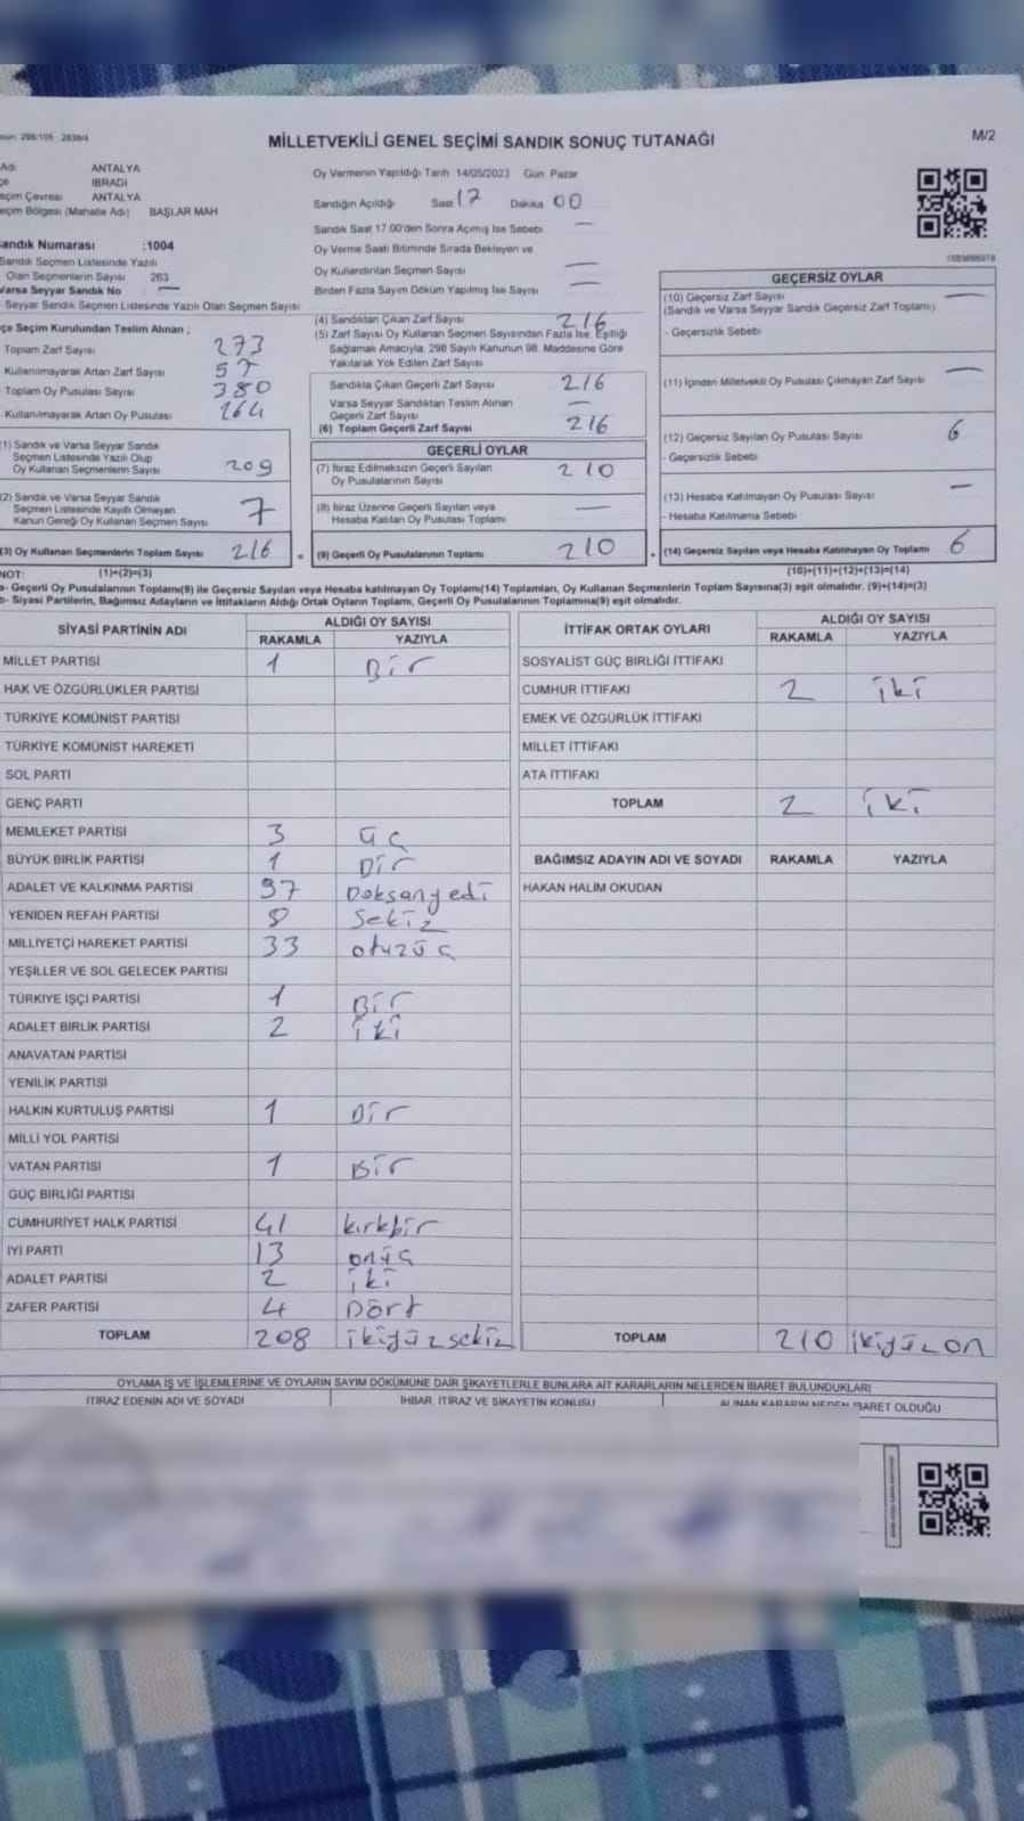 MİLLETVEKİLİ GENEL SEÇİMİ SANDIK SONUÇ TUTANAĞI
M/2
ANTALYA
İBRADI
ANTALYA
BAŞLAR MAH
Oy Vermenin Yapıldığı Tarih 14/05/2023 Gün: Pazar
Sandığın Açıldığı Saat 17 Dakika 00
Sandık Saat 17.00'den Sonra Açımış İse Sebebi —
Oy Verme Saati Bitiminde Sırada Bekleyen ve
Oy Kullandırılan Seçmen Sayısı —
Birden Fazla Sayım Döküm Yapılmış İse Sayısı —
andık Numarası :1004
Sandık Seçmen Listesinde Yazılı
Olan Seçmenlerin Sayısı 263
Varsa Seyyar Sandık No —
Seyyar Sandık Seçmen Listesinde Yazılı Olan Seçmen Sayısı
çe Seçim Kurulundan Teslim Alınan ;
Toplam Zarf Sayısı 273
Kullanılmayarak Artan Zarf Sayısı 57
Toplam Oy Pusulası Sayısı 380
Kullanılmayarak Artan Oy Pusulası 164
1) Sandık ve Varsa Seyyar Sandık
Seçmen Listesinde Yazılı Olup
Oy Kullanan Seçmenlerin Sayısı 209
(2) Sandık ve Varsa Seyyar Sandık
Seçmen Listesinde Kayıtlı Olmayan
Kanun Gereği Oy Kullanan Seçmen Sayısı 7
(3) Oy Kullanan Seçmenlerin Toplam Sayısı 216
(1)+(2)=(3)
(4) Sandıktan Çıkan Zarf Sayısı 216
(5) Zarf Sayısı Oy Kullanan Seçmen Sayısından Fazla İse, Eşitliği
Sağlamak Amacıyla, 298 Sayılı Kanunun 98. Maddesine Göre
Yakılarak Yok Edilen Zarf Sayısı
Sandıkta Çıkan Geçerli Zarf Sayısı 216
Varsa Seyyar Sandıktan Teslim Alınan
Geçerli Zarf Sayısı —
(6) Toplam Geçerli Zarf Sayısı 216
GEÇERLİ OYLAR
(7) İtiraz Edilmeksizin Geçerli Sayılan
Oy Pusulalarının Sayısı 210
(8) İtiraz Üzerine Geçerli Sayılan veya
Hesaba Katılan Oy Pusulası Toplamı —
(9) Geçerli Oy Pusulalarının Toplamı 210
GEÇERSİZ OYLAR
(10) Geçersiz Zarf Sayısı —
(Sandık ve Varsa Seyyar Sandık Geçersiz Zarf Toplamı)
- Geçersizlik Sebebi
(11) İçinden Milletvekili Oy Pusulası Çıkmayan Zarf Sayısı —
(12) Geçersiz Sayılan Oy Pusulası Sayısı 6
- Geçersizlik Sebebi
(13) Hesaba Katılmayan Oy Pusulası Sayısı —
- Hesaba Katılmama Sebebi
(14) Geçersiz Sayılan veya Hesaba Katılmayan Oy Toplamı 6
(10)+(11)+(12)+(13)=(14)
NOT:
a- Geçerli Oy Pusulalarının Toplamı(9) ile Geçersiz Sayılan veya Hesaba katılmayan Oy Toplamı(14) Toplamları, Oy Kullanan Seçmenlerin Toplam Sayısına(3) eşit olmalıdır. (9)+(14)=(3)
b- Siyasi Partilerin, Bağımsız Adayların ve İttifakların Aldığı Ortak Oyların Toplamı, Geçerli Oy Pusulalarının Toplamına(9) eşit olmalıdır.
SİYASİ PARTİNİN ADI ALDIĞI OY SAYISI
RAKAMLA YAZIYLA
MİLLET PARTİSİ 1 Bir
HAK VE ÖZGÜRLÜKLER PARTİSİ
TÜRKİYE KOMÜNİST PARTİSİ
TÜRKİYE KOMÜNİST HAREKETİ
SOL PARTİ
GENÇ PARTİ
MEMLEKET PARTİSİ 3 Üç
BÜYÜK BİRLİK PARTİSİ 1 Bir
ADALET VE KALKINMA PARTİSİ 97 Doksanyedi
YENİDEN REFAH PARTİSİ 8 Sekiz
MİLLİYETÇİ HAREKET PARTİSİ 33 otuzüç
YEŞİLLER VE SOL GELECEK PARTİSİ
TÜRKİYE İŞÇİ PARTİSİ 1 Bir
ADALET BİRLİK PARTİSİ 2 iki
ANAVATAN PARTİSİ
YENİLİK PARTİSİ
HALKIN KURTULUŞ PARTİSİ 1 Bir
MİLLİ YOL PARTİSİ
VATAN PARTİSİ 1 Bir
GÜÇ BİRLİĞİ PARTİSİ
CUMHURİYET HALK PARTİSİ 41 kırkbir
İYİ PARTİ 13 onüç
ADALET PARTİSİ 2 iki
ZAFER PARTİSİ 4 Dört
TOPLAM 208 ikiyüzsekiz
İTTİFAK ORTAK OYLARI ALDIĞI OY SAYISI
RAKAMLA YAZIYLA
SOSYALİST GÜÇ BİRLİĞİ İTTİFAKI
CUMHUR İTTİFAKI 2 iki
EMEK VE ÖZGÜRLÜK İTTİFAKI
MİLLET İTTİFAKI
ATA İTTİFAKI
TOPLAM 2 iki
BAĞIMSIZ ADAYIN ADI VE SOYADI RAKAMLA YAZIYLA
HAKAN HALİM OKUDAN
TOPLAM 210 ikiyüzon
OYLAMA İŞ VE İŞLEMLERİNE VE OYLARIN SAYIM DÖKÜMÜNE DAİR ŞİKAYETLERLE BUNLARA AİT KARARLARIN NELERDEN İBARET BULUNDUKLARI
İTİRAZ EDENİN ADI VE SOYADI
İHBAR, İTİRAZ VE ŞİKAYETİN KONUSU
ALINAN KARARIN NEDEN İBARET OLDUĞU